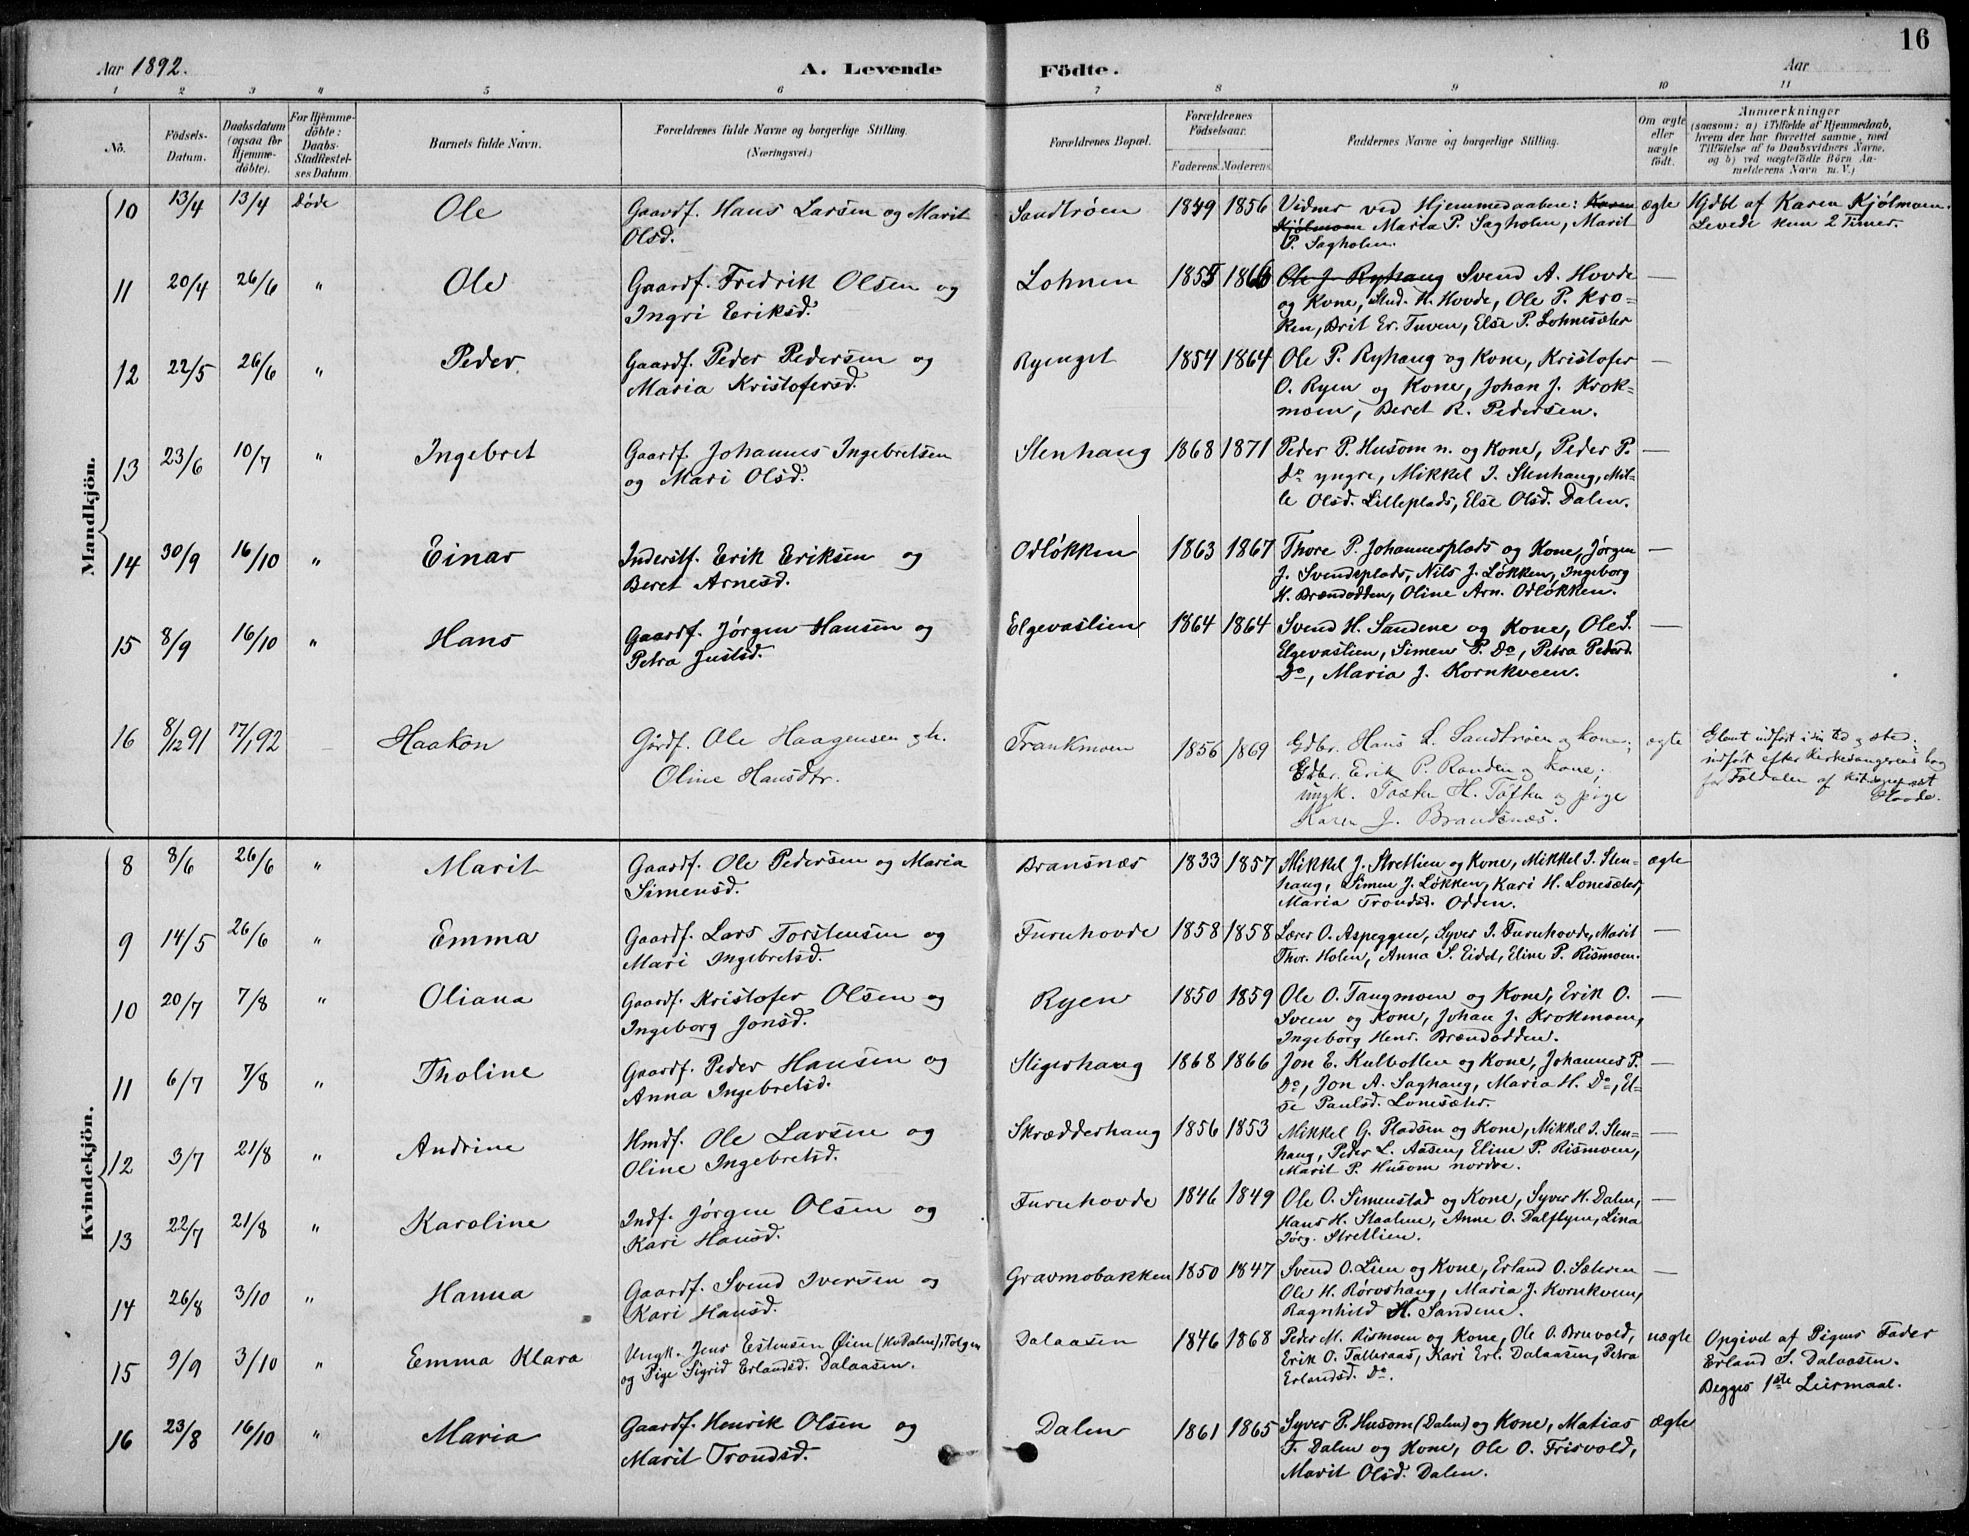 Aar 1892.
A. Levende Födte.
Aar
16
1 2 3 4 5 6 7 8 9 10 11
No.
Födsels-Datum.
Daabsdatum (ogsaa for Hjemmedöbte).
For Hjemmedöbte: Daabs-Stadfæstelses Datum
Barnets fulde Navn.
Forældrenes fulde Navne og borgerlige Stilling. (Næringsvei.)
Forældrenes Bopæl.
Forældrenes Födselsaar.
Faderens. Moderens.
Faddernes Navne og borgerlige Stilling.
Om ægte eller uægte födt.
Anmærkninger
(saasom: a) i Tilfælde af Hjemmedaab,
hvem der har forrettet samme, med
Tilföielse af to Daabsvidners Navne,
og b) ved uægtefödte Börn Anmelderens Navn m. V.)
Mandkjön.
10 13/4 13/4 Døde Ole Gaardf. Hans Larsen og Marit Sandtrøen 1849 1856 Vidner ved Hjemmedaaben: Karen ægte Hjdbt af Karen Kjølmoen.
Olsd. Kjølmoen Maria P. Sagholen, Marit Levede kun 2 Timer.
P. Sagholen.
11 20/4 26/6 " Ole Gaardf. Fredrik Olsen og Lohnen 1855 1866 Ole J. Ryhaug Svend A. Hovde —
Ingri Eriksd. og Kone, Svd. H. Hovde, Ole P. Kro-
ken, Brit Er. Tuven, Else P. Lohnesæter
12 22/5 26/6 " Peder Gaardf. Peder Pedersen og Ryenget 1854 1864 Ole P. Ryhaug og Kone, Kristofer —
Maria Kristofersd. O. Ryen og Kone, Johan J. Krok-
moen, Beret R. Pedersen.
13 23/6 10/7 " Ingebret Gaardf. Johannes Ingebretsen Stenhaug 1868 1871 Peder P. Husom n. og Kone, Peder P. —
og Mari Olsd. Do yngre, Mikkel I. Stenhaug, Mil-
le Olsd. Lilleplads, Else Olsd. Dalen.
14 30/9 16/10 " Einar Inderstf. Erik Eriksen og Odløkken 1863 1867 Thore P. Johannesplads og Kone, Jørgen —
Beret Arnesd. J. Svendsplads, Nils J. Løkken, Ingeborg
H. Brændodden, Oline Arn. Odløkken.
15 8/9 16/10 " Hans Gaardf. Jørgen Hansen og Elgevaslien 1864 1864 Svend H. Sandene og Kone, Ole S. —
Petra Justsd. Elgevaslien, Simen P. Do, Petra Pedersd.
Do, Maria J. Kornkveen.
16 8/12 91 17/1 92 — Haakon Gårdf. Ole Haagensen og h. Frankmoen 1856 1869 Gdbr. Hans L. Sandtrøen og kone; ægte Glemt indført i sin tid og sted;
Oline Hansdtr. Gdbr. Erik P. Randen og kone; indført efter Kirkesangerens bog
ungk. Tosten H. Toften og pige for Foldalen af
Karen J. Brandsnæs. Hovde.
Kvindekjön.
8 8/6 26/6 " Marit Gaardf. Ole Pedersen og Maria Bransnæs 1833 1857 Mikkel J. Stretlien og Kone, Mikkel I. Sten- ægte
Simensd. haug, Simen J. Løkken, Kari H. Lonesæter,
Maria Trondsd. Odden.
9 14/5 26/6 " Emma Gaardf. Lars Torstensen og Furuhovde 1858 1858 Lærer O. Aspeggen, Syver I. Furuhovde, Marit —
Mari Ingebretsd. Thor. Holen, Anna S. Eidet, Eline P. Rismoen.
10 20/7 7/8 " Oliana Gaardf. Kristofer Olsen og Ryen 1850 1859 Ole O. Taugmoen og Kone, Erik O. —
Ingeborg Jonsd. Sveen og Kone, Johan J. Krokmoen,
Ingeborg Henr. Brændodden.
11 6/7 7/8 " Tholine Gaardf. Peder Hansen og Stigershaug 1868 1866 Jon E. Kulbotten og Kone, Johannes P. —
Anna Ingebretsd. Do, Jon A. Saghaug, Maria H. Do, El-
se Paulsd. Lonesæter.
12 3/7 21/8 " Andrine Hmdf. Ole Larsen og Skrædderhaug 1856 1853 Mikkel G. Pladsen og Kone, Mikkel I. Sten- —
Oline Ingebretsd. haug, Peder L. Aasen, Eline P. Rismoen,
Marit P. Husom nordre.
13 22/7 21/8 " Karoline Indf. Jørgen Olsen og Furuhovde 1846 1849 Ole O. Simenstad og Kone, Syver H. Dalen, —
Kari Hansd. Hans H. Staalen, Anne O. Dalflyen, Lina
Jørg. Stretlien.
14 26/8 3/10 " Hanna Gaardf. Svend Iversen og Gravmobakken 1850 1847 Svend O. Lien og Kone, Erland O. Sæteren —
Kari Hansd. Ole H. Rørvshaug, Maria J. Kornkveen,
Ragnhild H. Sandene.
15 9/9 3/10 " Emma Klara Ungk. Jens Estensen Øien (KvDalen), Tolgen Dalaasen 1846 1868 Peder M. Rismoen og Kone, Ole O. Bruvold, uægte Opgivet af Pigens Fader
og Pige Sigrid Erlandsd. Dalaasen. Erik O. Talleraas, Kari Erl. Dalaasen, Petra Erland S. Dalaasen.
Erlandsd. Do. Begges 1ste Leiermaal.
16 23/8 16/10 " Maria Gaardf. Henrik Olsen og Dalen 1861 1865 Syver P. Husom (Dalen) og Kone, Matias ægte
Marit Trondsd. F. Dalen og Kone, Ole O. Frisvold,
Marit Olsd. Dalen.